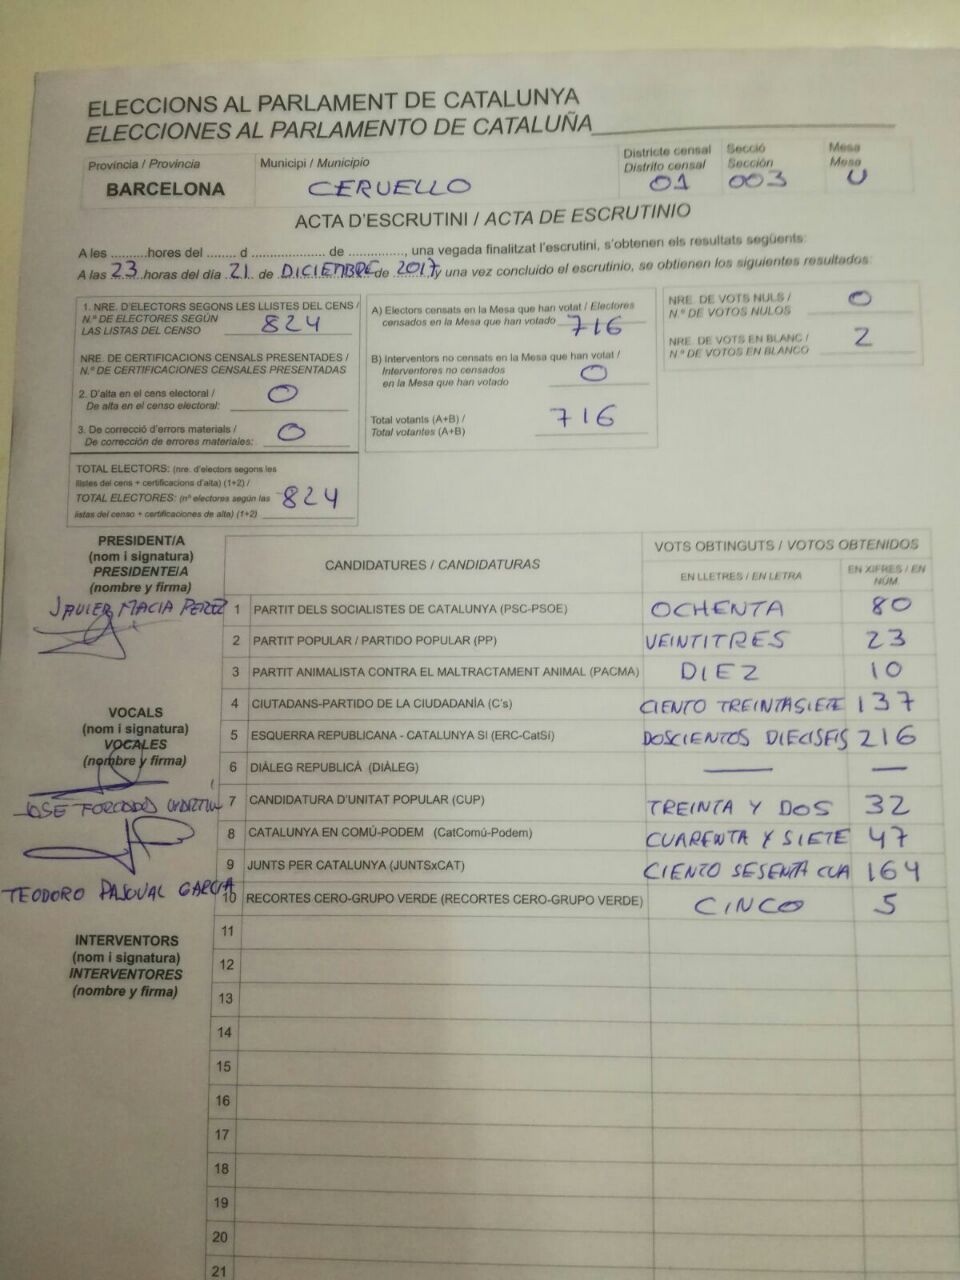 ELECCIONS AL PARLAMENT DE CATALUNYA
ELECCIONES AL PARLAMENTO DE CATALUÑA
Provincia / Provincia
BARCELONA
Municipi / Municipio
CERUELLO
Districte censal
Distrito censal
01
Secció
Sección
003
Mesa
Mesa
U
ACTA D'ESCRUTINI / ACTA DE ESCRUTINIO
A les ..........hores del ........ d .................... de ..............., una vegada finalitzat l'escrutini, s'obtenen els resultats següents:
A las 23 horas del día 21 de DICIEMBRE de 2017 y una vez concluido el escrutinio, se obtienen los siguientes resultados:
1. NRE. D'ELECTORS SEGONS LES LLISTES DEL CENS /
N.º DE ELECTORES SEGÚN
LAS LISTAS DEL CENSO 824
NRE. DE CERTIFICACIONS CENSALS PRESENTADES /
N.º DE CERTIFICACIONES CENSALES PRESENTADAS
2. D'alta en el cens electoral /
De alta en el censo electoral: 0
3. De correcció d'errors materials /
De corrección de errores materiales: 0
TOTAL ELECTORS: (nre. d'electors segons les
llistes del cens + certificacions d'alta) (1+2) /
TOTAL ELECTORES: (nº electores según las
listas del censo + certificaciones de alta) (1+2) 824
A) Electors censats en la Mesa que han votat / Electores
censados en la Mesa que han votado 716
B) Interventors no censats en la Mesa que han votat /
Interventores no censados
en la Mesa que han votado 0
Total votants (A+B) /
Total votantes (A+B) 716
NRE. DE VOTS NULS /
N.º DE VOTOS NULOS 0
NRE. DE VOTS EN BLANC /
N.º DE VOTOS EN BLANCO 2
PRESIDENT/A
(nom i signatura)
PRESIDENTE/A
(nombre y firma)
JAVIER MACIA PEREZ
VOCALS
(nom i signatura)
VOCALES
(nombre y firma)
JOSE
TEODORO PASCUAL GARCIA
INTERVENTORS
(nom i signatura)
INTERVENTORES
(nombre y firma)
CANDIDATURES / CANDIDATURAS
VOTS OBTINGUTS / VOTOS OBTENIDOS
EN LLETRES / EN LETRA
EN XIFRES / EN NÚM.
1 PARTIT DELS SOCIALISTES DE CATALUNYA (PSC-PSOE) OCHENTA 80
2 PARTIT POPULAR / PARTIDO POPULAR (PP) VEINTITRES 23
3 PARTIT ANIMALISTA CONTRA EL MALTRACTAMENT ANIMAL (PACMA) DIEZ 10
4 CIUTADANS-PARTIDO DE LA CIUDADANÍA (C's) CIENTO TREINTASIETE 137
5 ESQUERRA REPUBLICANA - CATALUNYA SI (ERC-CatSí) DOSCIENTOS DIECISEIS 216
6 DIÀLEG REPUBLICÀ (DIÀLEG) — —
7 CANDIDATURA D'UNITAT POPULAR (CUP) TREINTA Y DOS 32
8 CATALUNYA EN COMÚ-PODEM (CatComú-Podem) CUARENTA Y SIETE 47
9 JUNTS PER CATALUNYA (JUNTSxCAT) CIENTO SESENTA CUA 164
10 RECORTES CERO-GRUPO VERDE (RECORTES CERO-GRUPO VERDE) CINCO 5
11
12
13
14
15
16
17
18
19
20
21